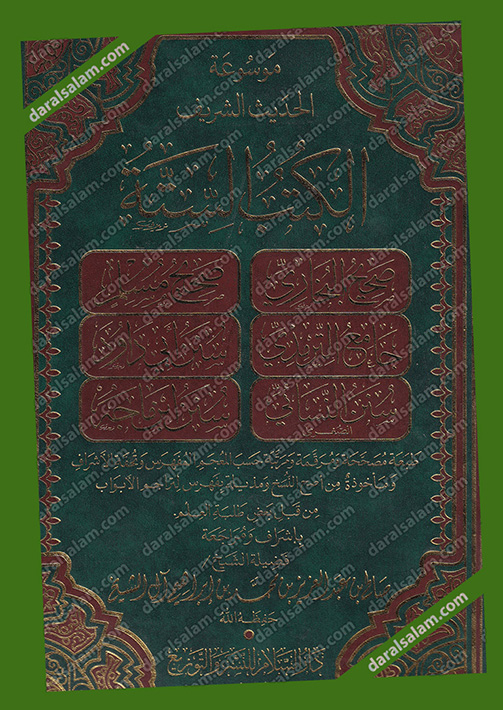 daralsalam.com
موسوعة
الحديث الشريف
الكتب الستة
صحيح البخاري
صحيح مسلم
جامع الترمذي
سنن أبي داود
سنن النسائي
سنن ابن ماجه
طبعة مصححة ومرقمة ومرتبة حسب المعجم المفهرس وتحفة الأشراف
ومأخوذة من أصح النسخ ومذيلة بفهرس تراجم الأبواب
من قبل بعض طلبة العلم
بإشراف ومراجعة
فضيلة الشيخ
صالح بن عبد العزيز بن محمد بن إبراهيم آل الشيخ
حفظه الله
دار السلام للنشر والتوزيع
daralsalam.com